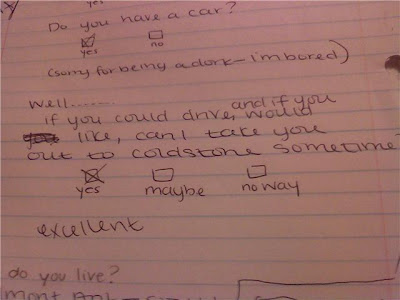 yes
Do you have a car?
yes no
(sorry for being a dork- im bored)
well.......
and if you
if you could drive, would
like, can I take you
out to coldstone sometime?
yes maybe no way
excellent
do you live?